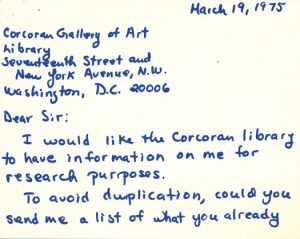 March 19, 1975
Corcoran Gallery of Art
Library
Seventeenth Street and
New York Avenue, N.W.
Washington, D.C. 20006
Dear Sir:
I would like the Corcoran library
to have information on me for
research purposes.
To avoid duplication, could you
send me a list of what you already